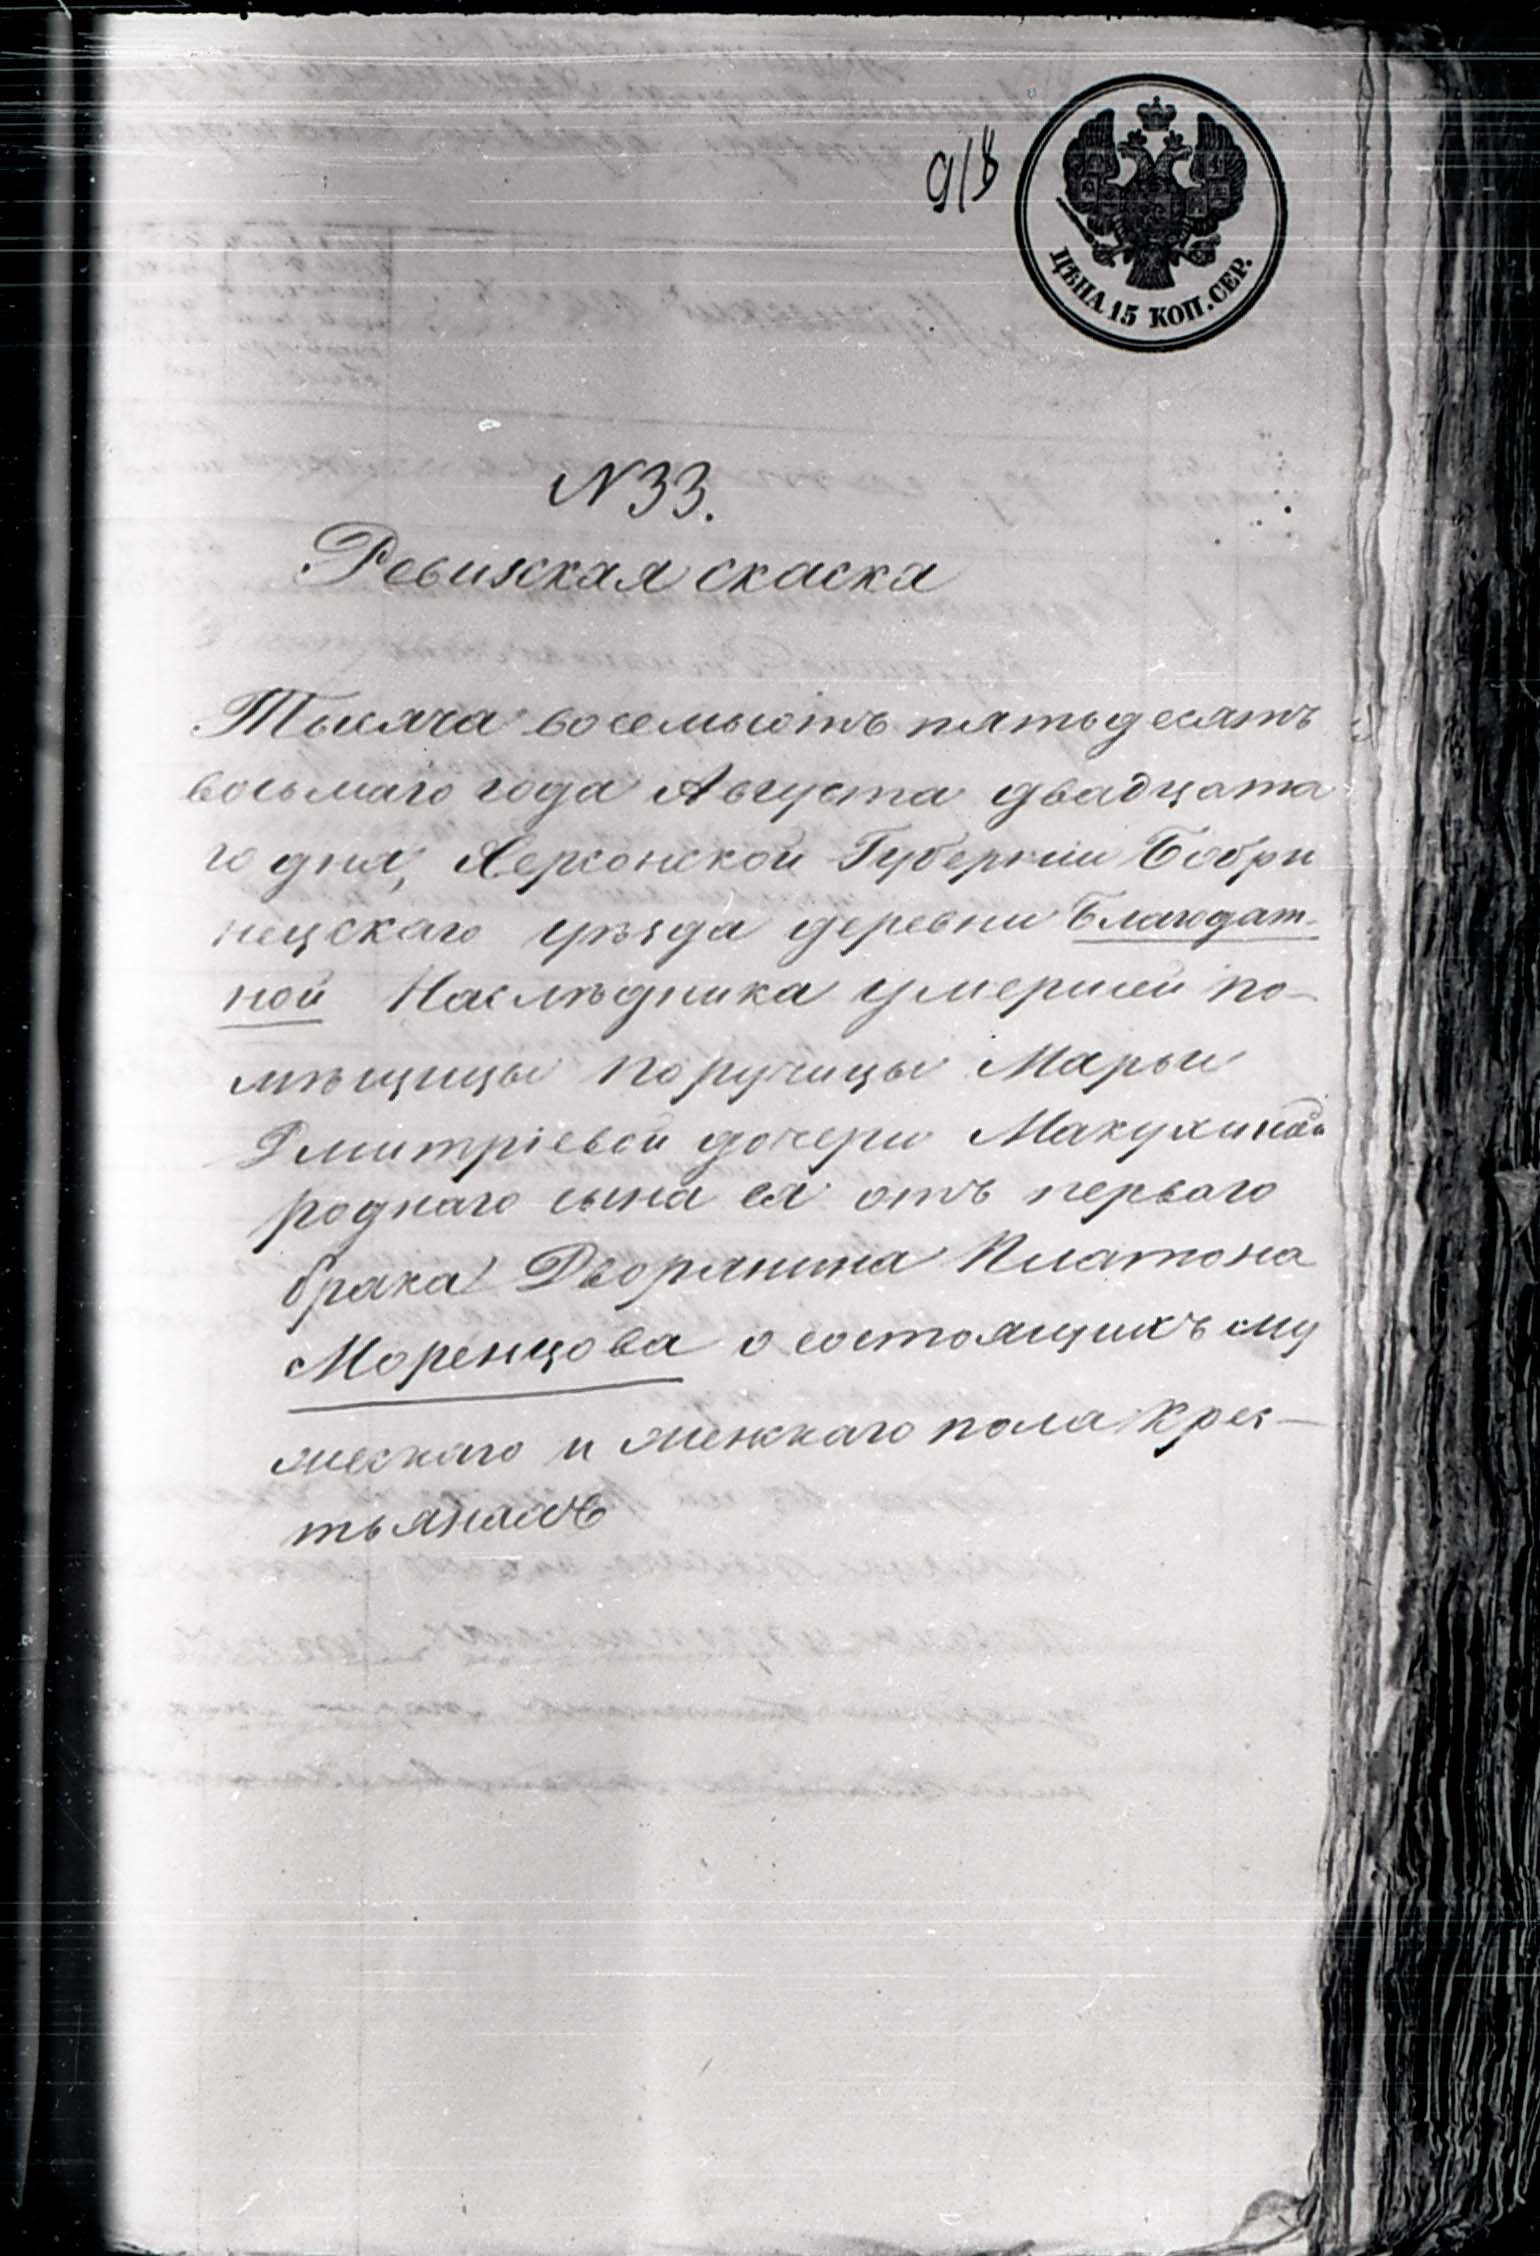 918
ЦѢНА 15 КОП. СЕР.
N 33.
Ревизская скаска
Тысяча восемьсотъ пятьдесятъ
восьмаго года Августа двадцата
го дня, Херсонской Губерніи Бобри
нецскаго уѣзда деревни Благодат-
ной Наслѣдника умершей по-
мѣщицы поручицы Марьи
Дмитріевой дочери Макухиной
роднаго сына ея отъ перваго
брака Дворянина Платона
Моренцова о состоящихъ му
жескаго и женскаго пола крес-
тьянахъ